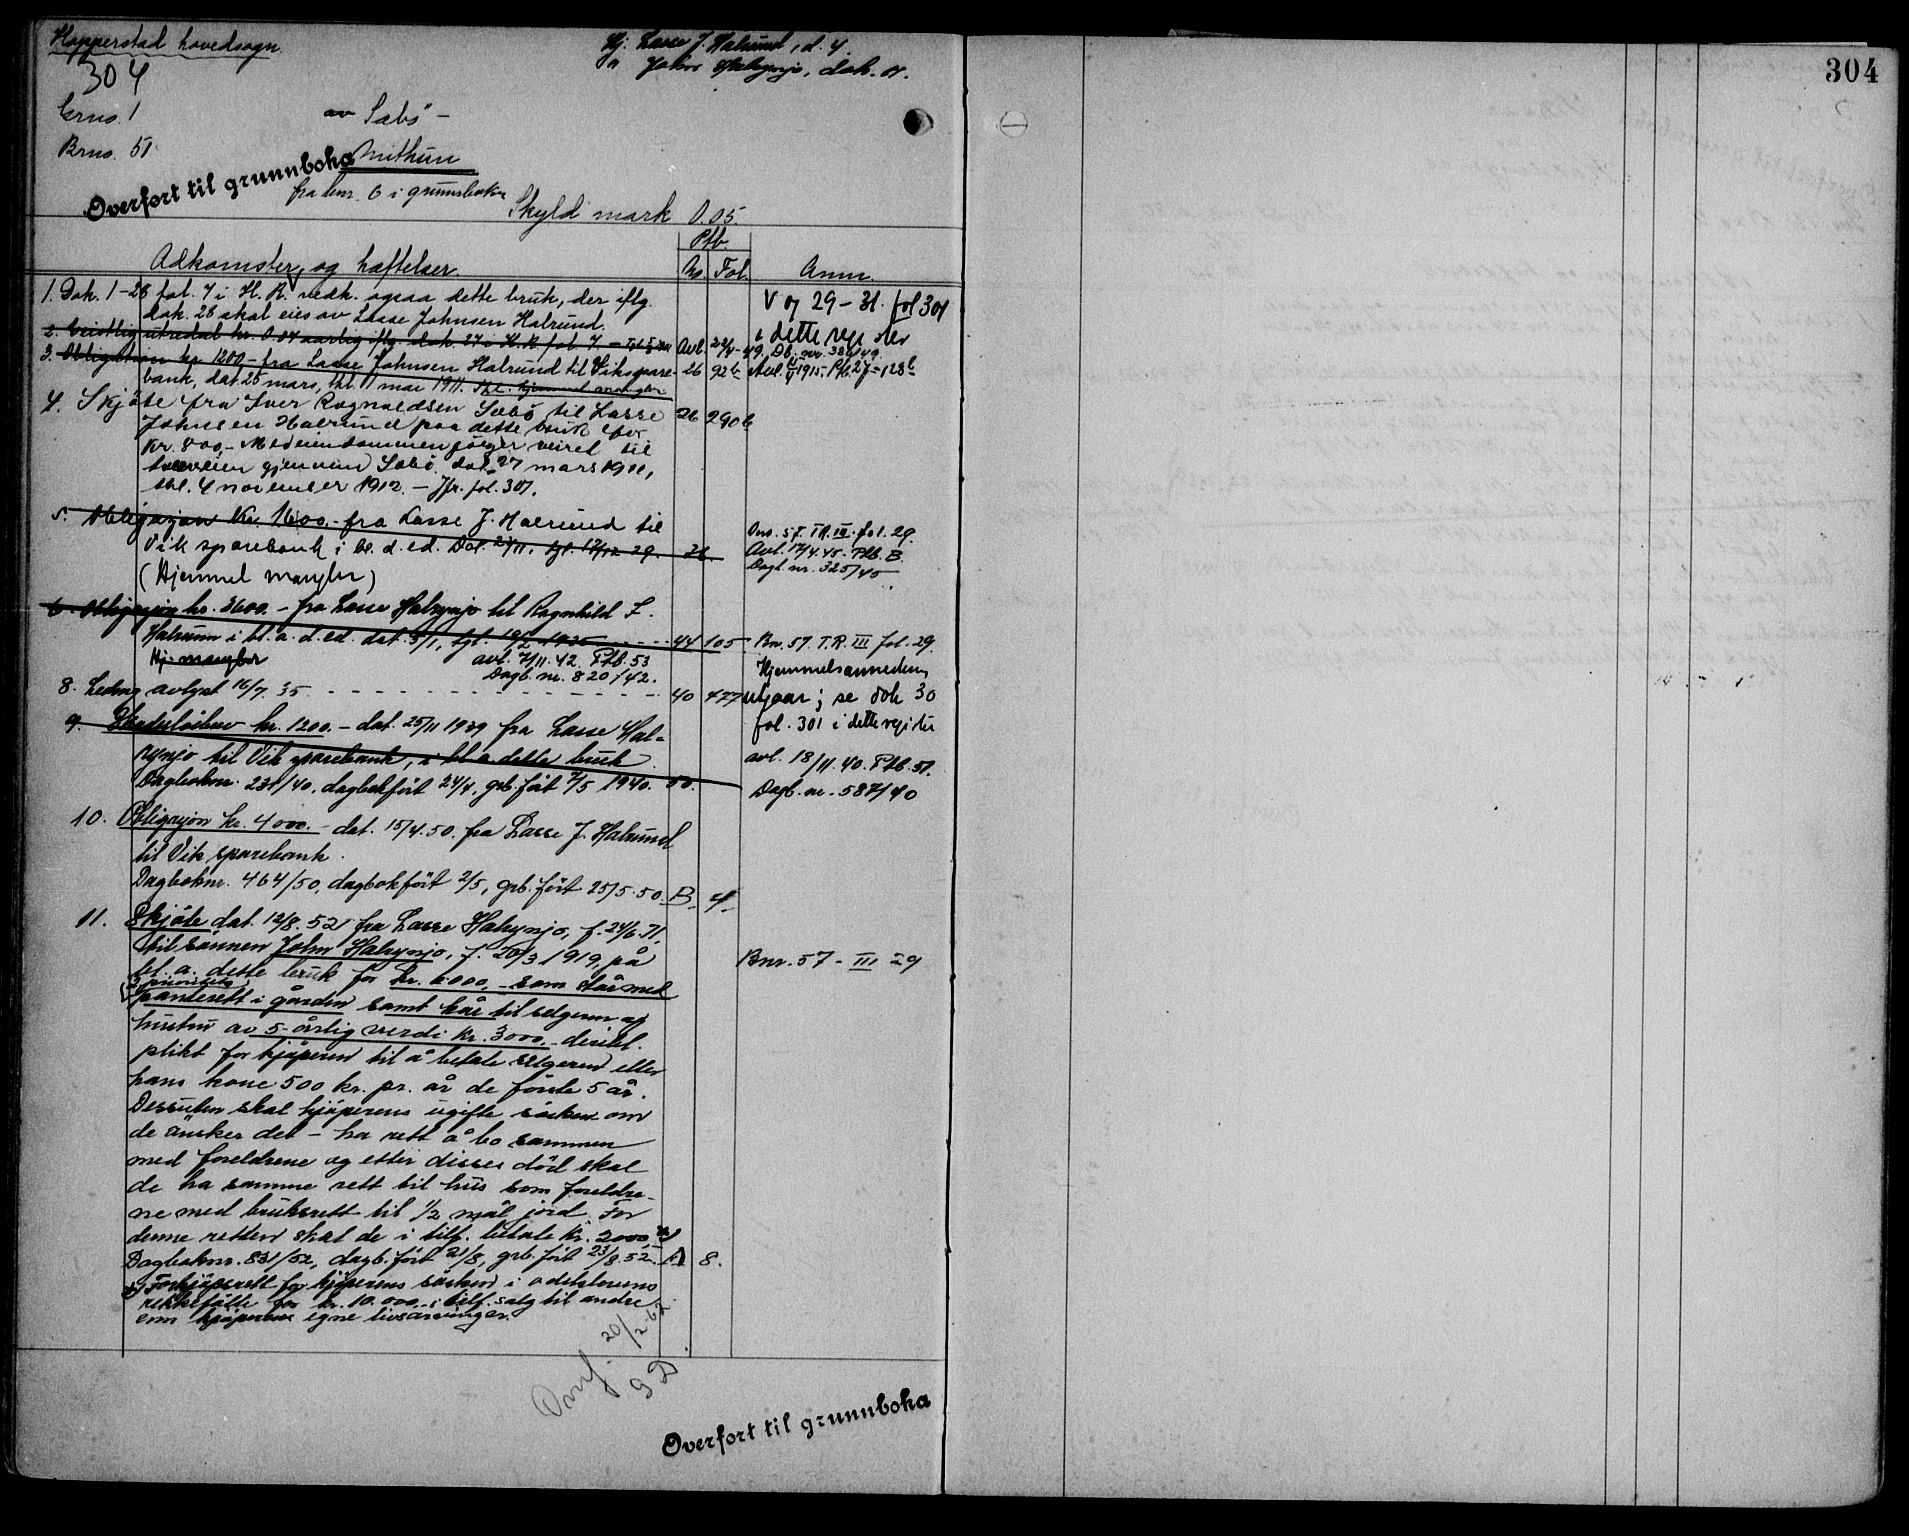 Hopperstad hovedsogn.
304
Hj. Lasse J. Halrund, d. 4.
" John Halrynjo, dok. 11.
304
Grno. 1
av Säbö -
Brno. 51
Nithun
Overført til grunnboka
fra bnr. 6 i grunnboken
Skyld mark 0.05
Ptb.
Adkomster og hæftelser
No. Fol. Anm.
1. Dok. 1-28 fol. 7 i H. R. vedk. ogsaa dette bruk, der iflg.
dok. 28 skal eies av Lasse Johnsen Halrund.
V og 29 - 31. fol 301
i dette reg ster
2. Geistlig utredsel kr. 0.04 aarlig iflg. dok. 27 i H. R. fol 7.
Avl. 22/4-49. Db. nr. 386/49.
3. Obligation kr. 1200,- fra Lasse Johnsen Halrund til Vikspare-
bank, dat. 25 mars, tbl. 11 mai 1911. Tbl. hjemmel mangler.
26 92b Avl. 1915. Ptb. 27-128b
4. Skjöte fra Iver Rognaldsen Sæbö til Lasse
Johnsen Halrund paa dette bruk for
kr. 800,- Med eiendommen fölger veiret til
hovedveien gjennem Sæbö. dat. 27 mars 1911,
tbl. 4 november 1912. - Jfr. fol. 307.
26 290b
5. Obligasjon kr. 1600.- fra Lasse J. Halrund til
Vik sparebank i bl. a. ed. Dat. 29/11. tgl. 12/12 29.
(Hjemmel mangler)
Bno. 57. TR. III. fol. 29.
Avl. 17/4.45. Ptb. B.
Dagb. nr. 325/45
6. Obligasjon kr. 3600.- fra Lasse Halrynjo til Ragnhild L.
Halrunn i bl. a. d. ed. dat. 5/1, tgl. 19/2 1935
44 105 Bn. 57. T.R. III fol. 29.
Hj. mangler
avl. 7/11.42. Ptb. 53
Dagb. nr. 820/42.
Hjemmelsanmerkn.
utgaar; se dok 30
fol. 301 i dette register
8. Ledning avlyst 16/7. 35
40 477
9. Skadeslösbrev kr. 1200.- dat. 25/11 1939 fra Lasse Hal-
rynjo til Vik sparebank, i bl. a. dette bruk
Dagboknr. 231/40, dagbokfört 24/4, grb. fört 7/5 1940. 50.
avl. 18/11.40. Ptb. 51.
Dagb. nr. 587/40
10. Obligasjon kr. 4000.- dat. 15/4.50. fra Lasse J. Halrund
til Vik sparebank.
Dagboknr. 464/50, dagbokfört 2/5, grb. fört 25/5.50. B. 4.
11. Skjöte dat. 12/8. 52 fra Lasse Halrynjo, f. 24/6.71,
til sönnen John Halrynjo, f. 20/3 1919, på
bl. a. dette bruk for kr. 6000.- som står med
2 prioritets
panterett i gården samt kår til selgeren og
hustru av 5-årlig verdi kr. 3000.-
plikt for kjöperen til å betale selgeren eller
hans kone 500 kr. pr. år de förste 5 år.
Dessuten skal kjöperens ugifte söken om
de önsker det - ha rett å bo sammen
med foreldrene og etter disses död skal
de ha samme rett til hus som foreldre-
ne med bruksrett til 1/2 mål jord. For
denne retten skal de i tilf. betale kr. 2000 x)
Dagboknr. 831/52, dagb. fört 21/8, grb. fört 23/8.52. D 8.
Bnr. 57 - III 29
x) Forkjöpsrett for kjöperens söken i odelslovens
rekkefölge for kr. 10.000.- i tilf. salg til andre
enn kjöperens egne livsarvinger.
Omf. 20/2-62
G D
Overført til grunnboka